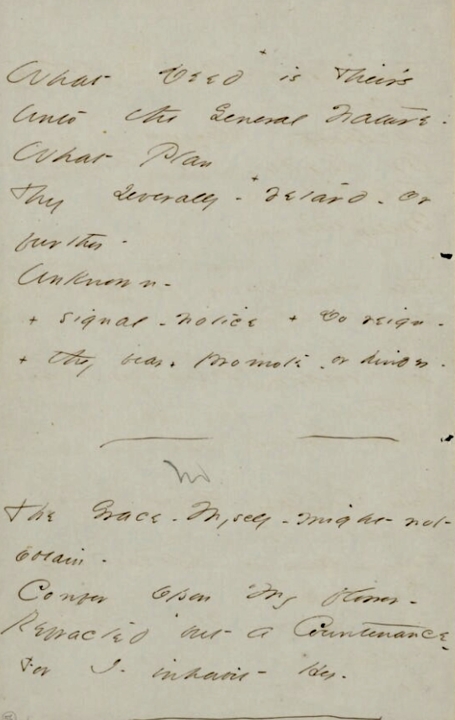 What Deed is Theirs
Unto the General Nature -
What Plan
They severally - + retard - or
further -
Unknown -
+ signal - notice + Do reign -
+ they bear - promote - or hinder -
The Grace - Myself - might not
obtain -
Confer Upon My flower -
Refracted but a Countenance -
For I - inhabit Her -